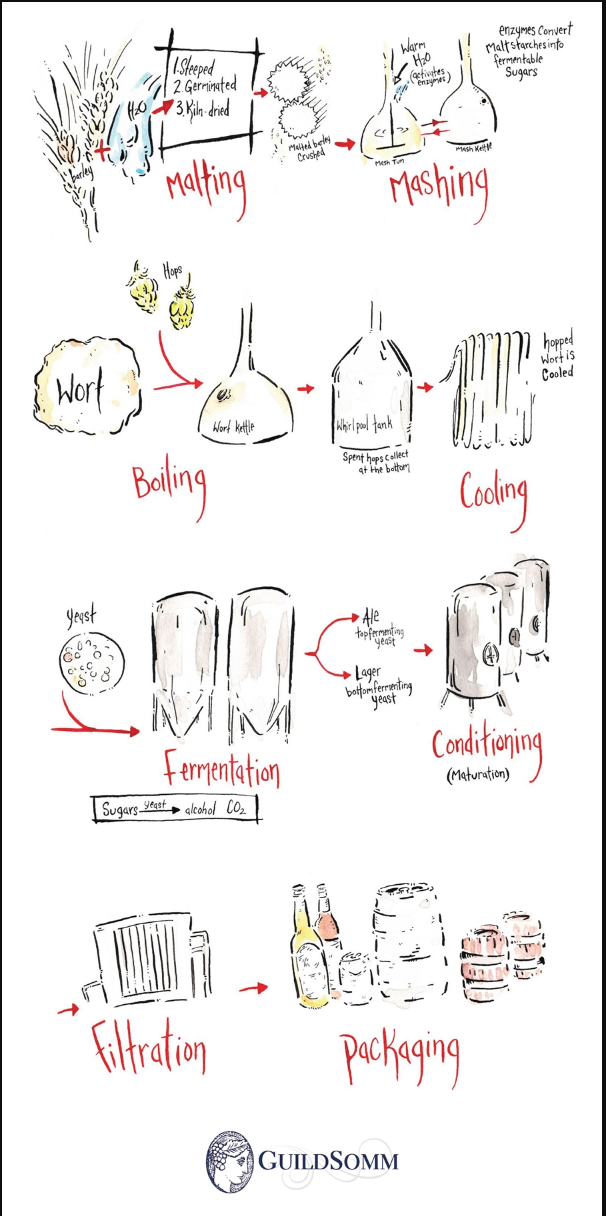 barley
H2O
1. Steeped
2. Germinated
3. Kiln-dried
Malted barley
Crushed
Malting
Warm
H2O
(activates
enzymes)
Mash Tun
Mash Kettle
enzymes Convert
Malt starches into
fermentable
Sugars
Mashing
Hops
Wort
Wort Kettle
Whirlpool tank
Spent hops collect
at the bottom
hopped
Wort is
Cooled
Boiling
Cooling
yeast
Ale
top fermenting
yeast
Lager
bottom fermenting
yeast
Fermentation
Conditioning
(Maturation)
Sugars yeast alcohol CO2
Filtration
Packaging
GUILDSOMM